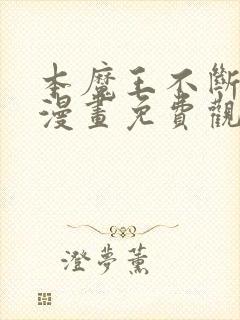 本魔王不斷
漫畫免費觀
澄夢薰